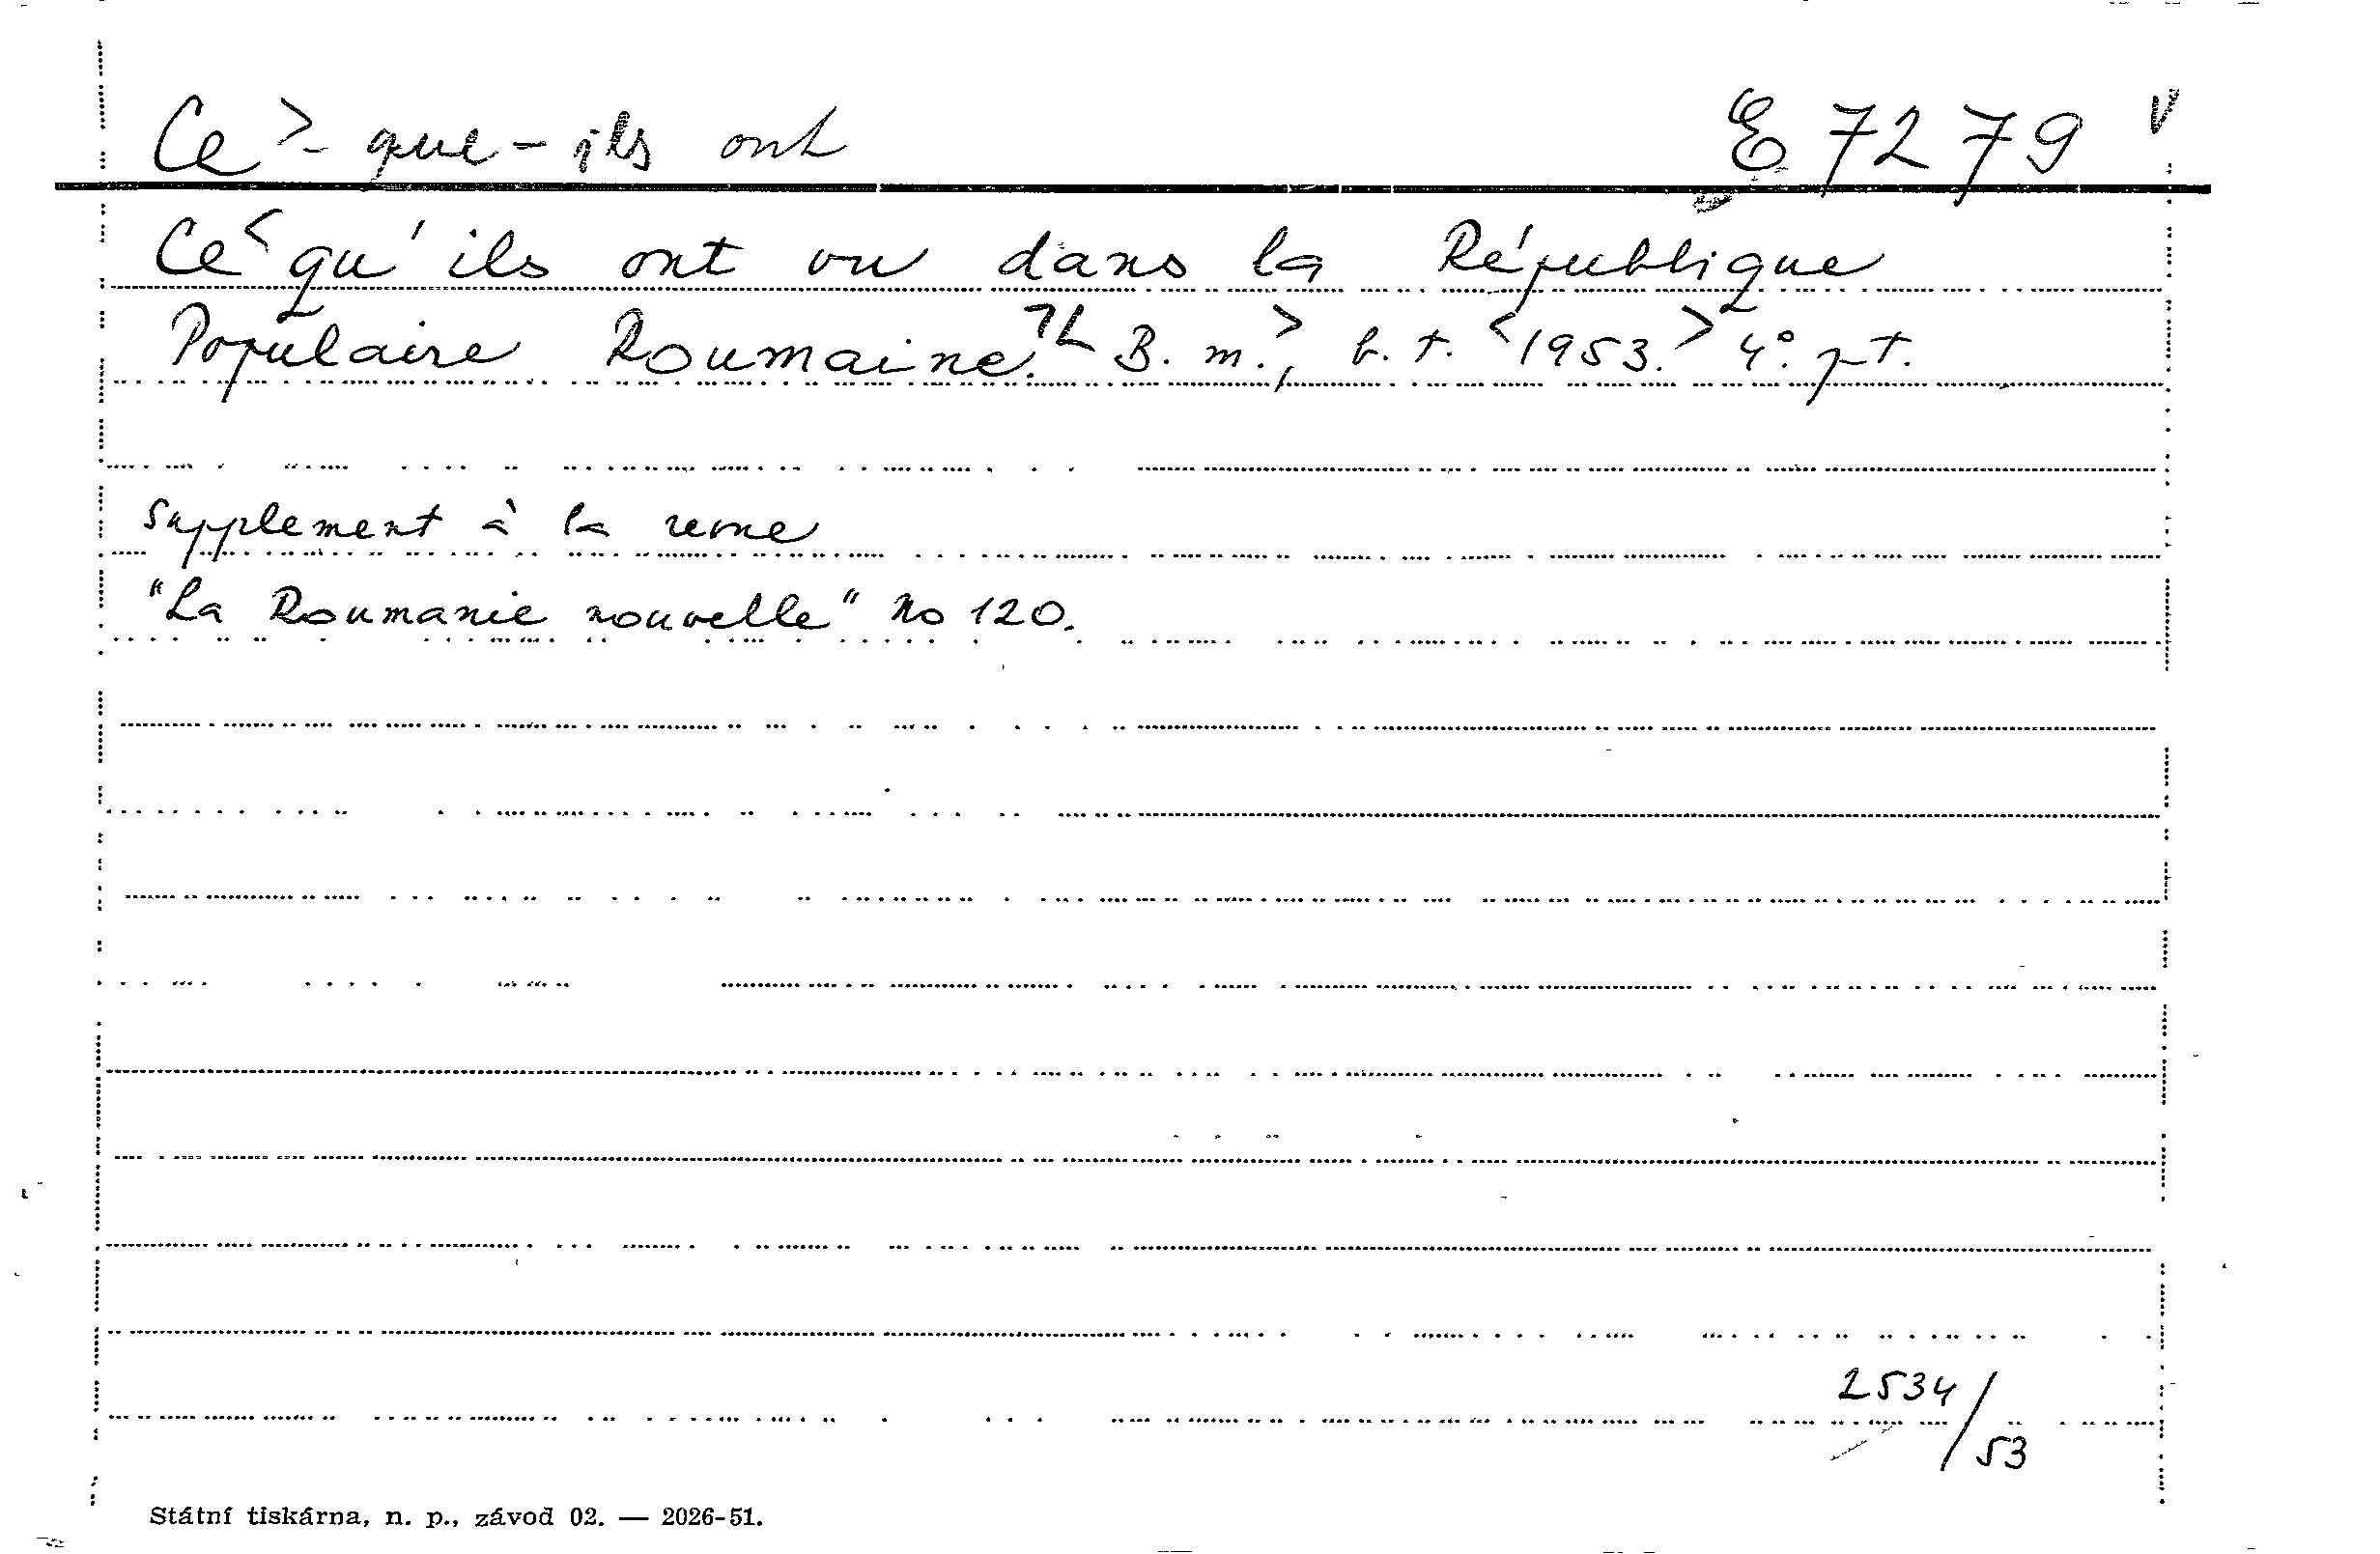 Ce > - que - ils ont E 7279 v
Ce < qu'ils ont vu dans la République
Populaire Roumaine. B. m.>, b. t. <1953.> 4°. pt.
Supplement à la revue
"La Roumanie nouvelle" No 120.
2534/
53
Státní tiskárna, n. p., závod 02. — 2026-51.